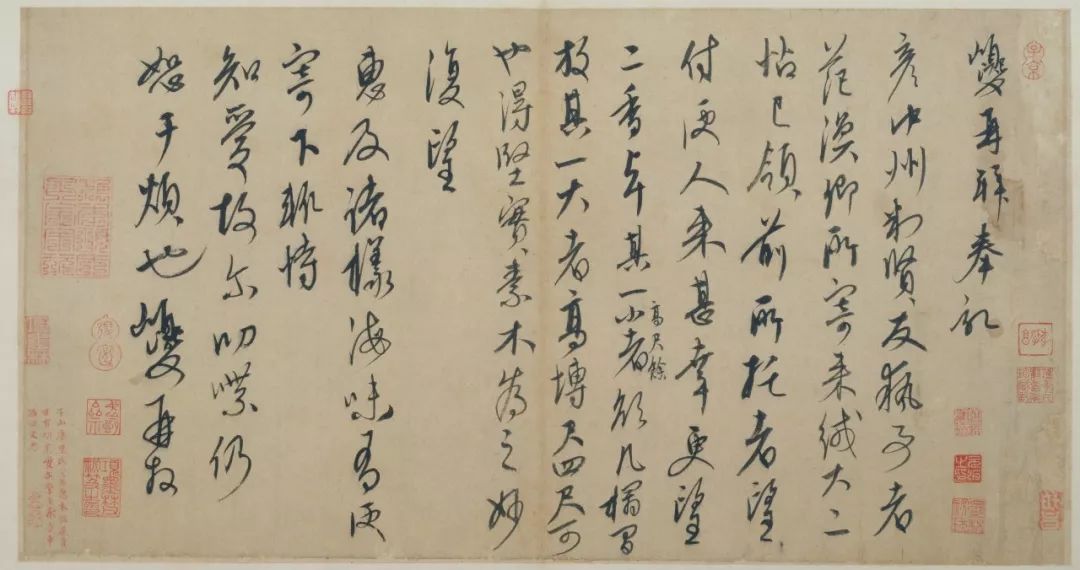 巎再拜奉記
彥中州判賢友執事者
范漢卿所寄来緘大二
帖已領前所托者望
付便人来甚幸更望
二香卓其一小者高尺餘欲几榻間
放其一大者高博尺四尺可
也得堅實素木為之妙
復望
惠及諸樣海味有便
寄下輒恃
知愛故尔叨仍
恕干煩也巎再拜